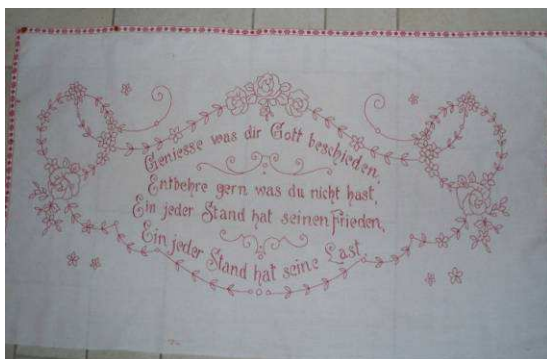 Geniesse was dir Gott beschieden,
Entbehre gern was du nicht hast,
Ein jeder Stand hat seinen Frieden,
Ein jeder Stand hat seine Last